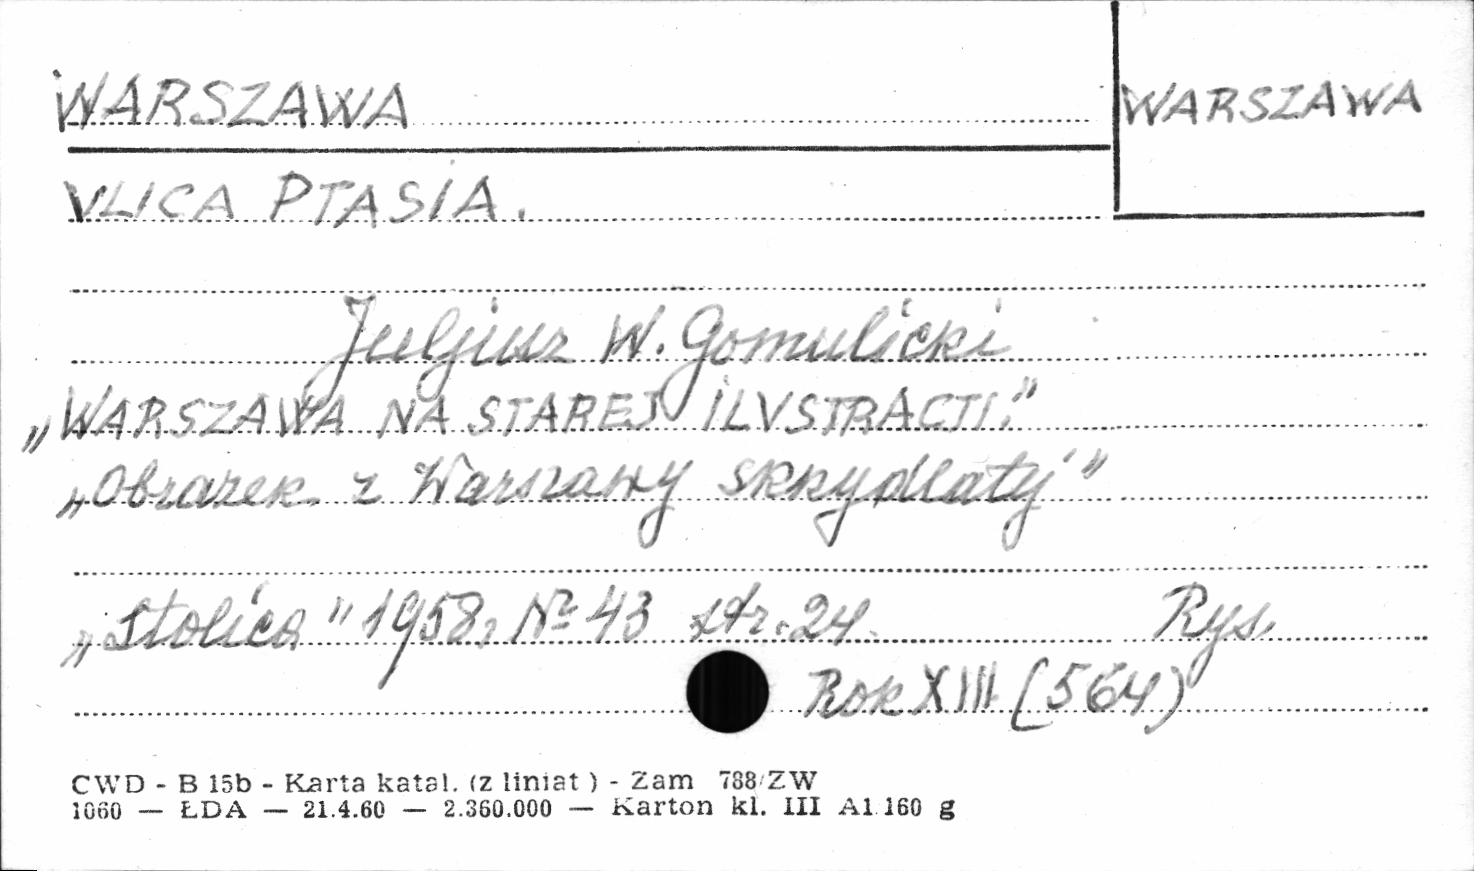 WARSZAWA
WARSZAWA
ULICA PTASIA.
Juljusz W. Gomulicki
„WARSZAWA NA STAREJ ILUSTRACJI."
„Obrazek z Warszawy skrzydlatej"
„Stolica" 1958, Nº 43 str. 24. Rys.
Rok XIII (564)
CWD - B 15b - Karta katal. (z liniat ) - Zam 788/ZW
1060 — ŁDA — 21.4.60 — 2.360.000 — Karton kl. III A1 160 g